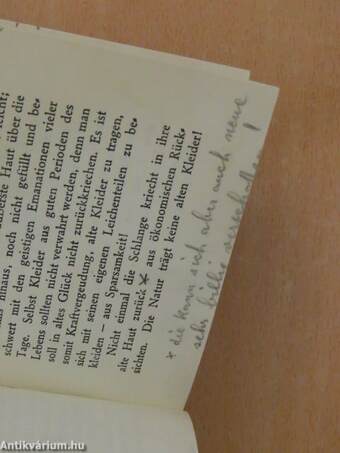 leicht;
äußerste Haut über die
hinaus, noch nicht gefüllt und be-
schwert mit den geistigen Emanationen vieler
Tage. Selbst Kleider aus guten Perioden des
Lebens sollten nicht verwahrt werden, denn man
soll in altes Glück nicht zurückkriechen. Es ist
somit Kraftvergeudung, alte Kleider zu tragen,
sich mit seinen eigenen Leichenteilen zu be-
kleiden – aus Sparsamkeit!
Nicht einmal die Schlange kriecht in ihre
alte Haut zurück * aus ökonomischen Rück-
sichten. Die Natur trägt keine alten Kleider!
* die kann sich aber auch neue
sehr billig verschaffen!
Antikvárium.hu